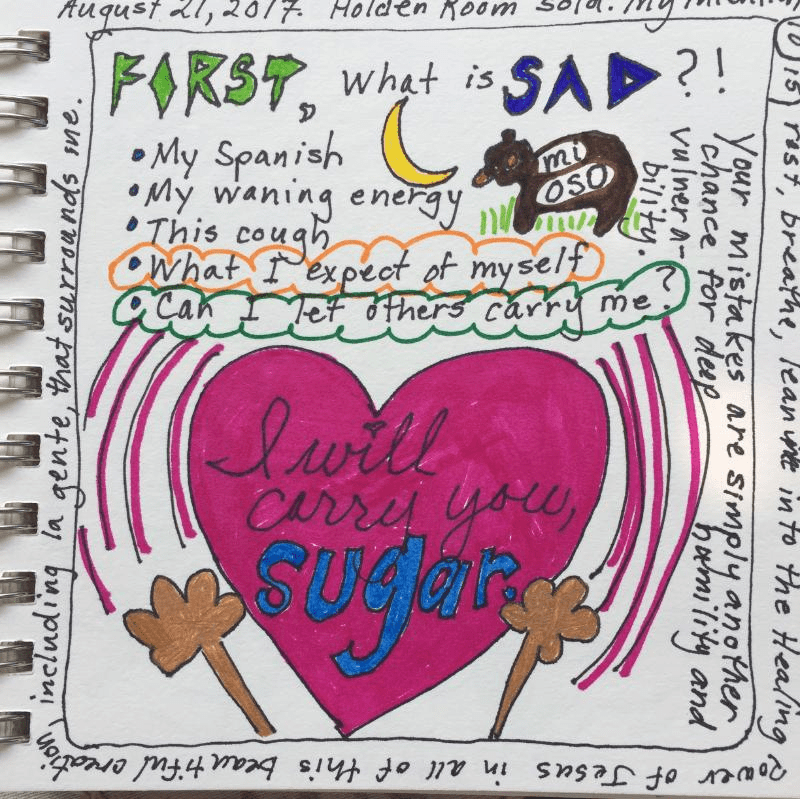 August 21, 2017. Holden Room sold. My intention
is rest, breathe, lean in to the Healing
Power of Jesus in all of this beautiful creation,
including la gente, that surrounds me.
FIRST, what is SAD?!
• My Spanish
• My waning energy
• This cough
• What I expect of myself
• Can I let others carry me?
mi
oso
Your mistakes are simply another
chance for deep humility and
vulnera-
bility.
I will
carry you,
sugar.